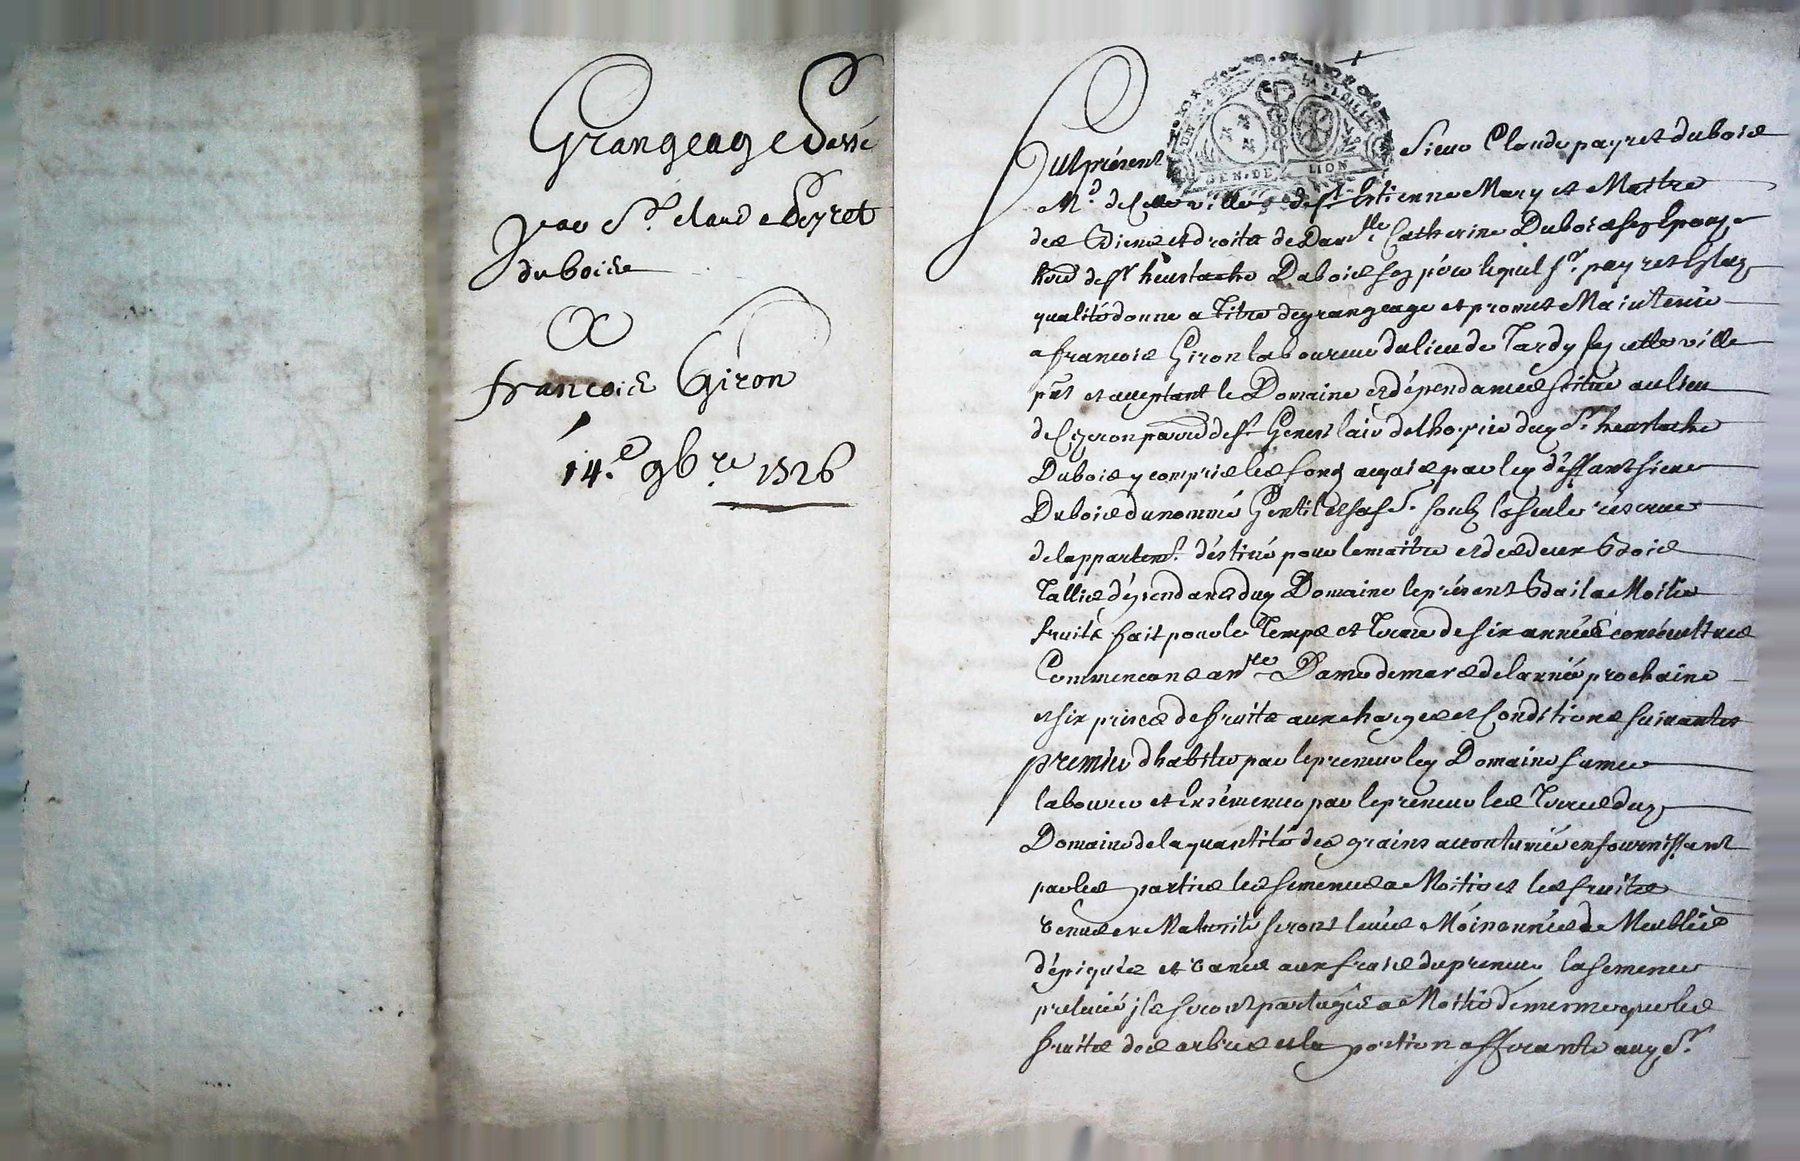 Grangeage Passé
par Sr. claude Peyret
duboise
A
françois Giron
14.e 9bre 1726
GEN. DE LION
Fut présent Sieur Claude payret dubois
Md. de cette ville de St. Estienne Mary et Maitre
des Biens et droits de Damlle Catherine Dubois son Epouse
de sr heustache Dubois son père lequel sr. payret
qualité donne a titre de grangeage et promet Maintenir
a francois Giron laboureur du lieu de Tardy cette ville
pnt et acceptant le Domaine et dépendances scitué au lieu
de St Genest dud Sr. heustache
Dubois y compris les fonds acquis par led déffunt sieur
Dubois du nommé Gentil et sa f. soubs la seule réserve
de lappartent. déstiné pour le maitre et des deux Bois
Tallis dépendans dud Domaine le présent Bail a Moitié
fruits fait pour le Temps et Terme de six années consécuttives
Commencans a nre Dame de mars de lannée prochaine
et six prises de fruits aux charges et Conditions suivantes
premier dhabiter par le preneur led Domaine fumer
labourer et Ensémencer par le preneur les Terres dud
Domaine de la quantité des grains accoutumés en fournissant
par les parties les semences a Moitié et les fruits
venus en Maturité seront levés Moissonnés
dépiqués et vanés aux frais du preneur la semence
prelevé ils seront partagés a Moitié de mesme que les
fruits des arbres et la portion afférante aud Sr.